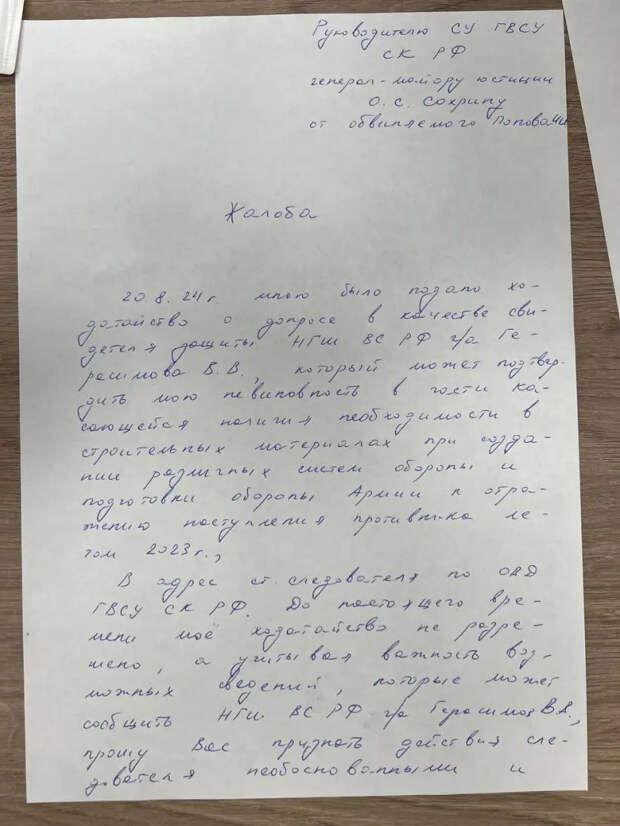 Руководителю СУ ГВСУ
СК РФ
генерал-майору юстиции
О.С. Сохрину
от обвиняемого Попова И.И.
Жалоба
20.8.24 г. мною было подано хо-
датайство о допросе в качестве сви-
детеля защиты НГШ ВС РФ г/а Ге-
расимова В.В., который может подтвер-
дить мою невиновность в части ка-
сающейся наличия необходимости в
строительных материалах при созда-
нии различных систем обороны и
подготовки обороны Армии к отра-
жению наступления противника ле-
том 2023 г.,
В адрес ст. следователя по ОВД
ГВСУ СК РФ. До настоящего вре-
мени моё ходатайство не разре-
шено, а учитывая важность воз-
можных сведений, которые может
сообщить НГШ ВС РФ г/а Герасимов В.В.,
прошу Вас признать действия сле-
дователя необоснованными и